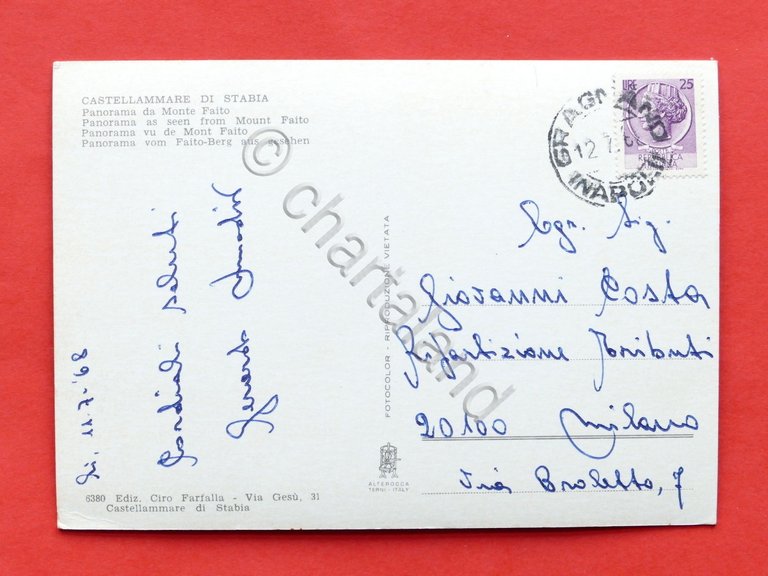 CASTELLAMMARE DI STABIA
Panorama da Monte Faito
Panorama as seen from Mount Faito
Panorama vu de Mont Faito
Panorama vom Faito-Berg aus gesehen
11.7.'68
Cordiali saluti
FOTOCOLOR - RIPRODUZIONE VIETATA
LIRE 25
GRAGNANO
(NAPOLI)
12.7
Egr. Sig.
Giovanni Costa
Ripartizione Tributi
20100 Milano
Via Broletto, 7
ALTEROCCA
TERNI - ITALY
6380 Ediz. Ciro Farfalla - Via Gesù, 31
Castellammare di Stabia
© chartaland